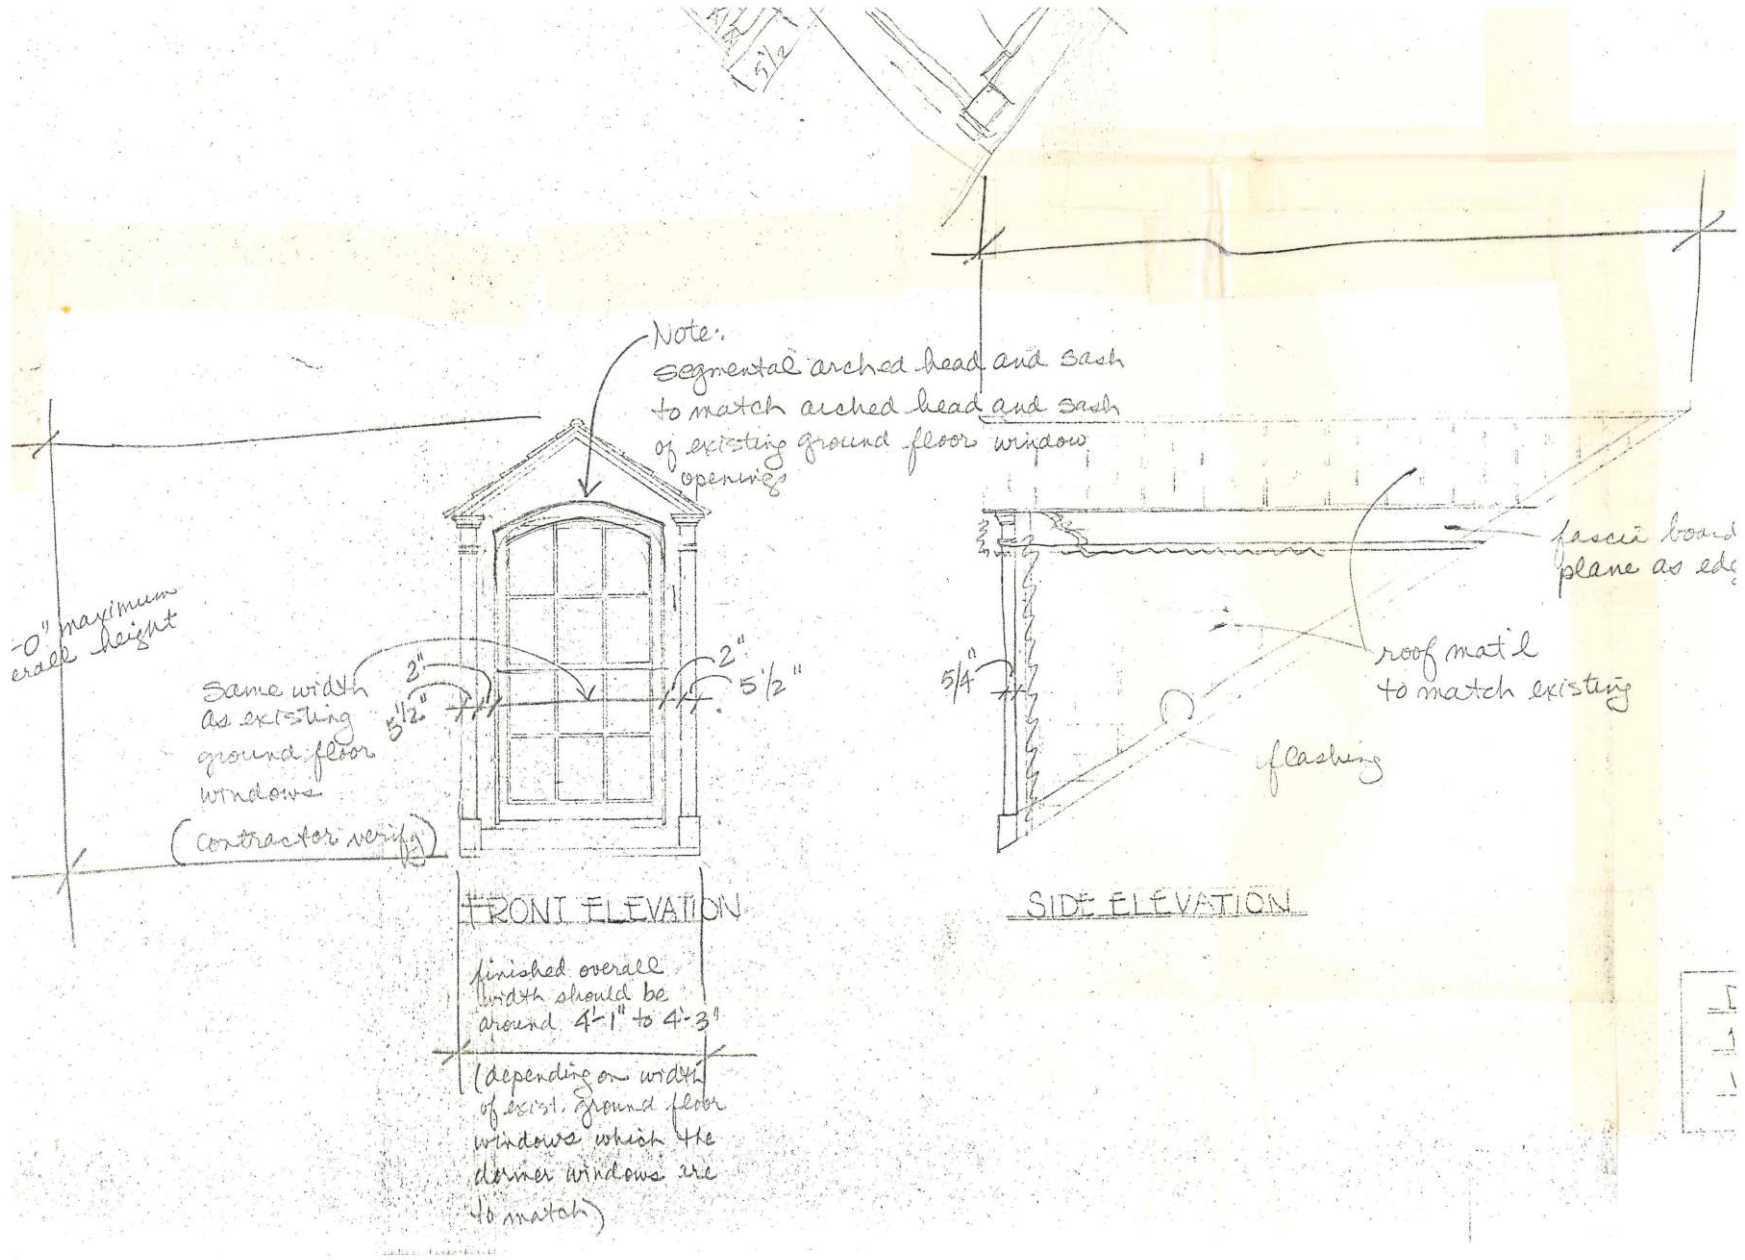 5 1/2
Note:
segmental arched head and sash
to match arched head and sash
of existing ground floor window
openings
-0" maximum
erall height
same width
as existing
ground floor
windows
(contractor verify)
2"
5 1/2"
2"
5 1/2"
5/4"
fascia board
plane as edg
roof mat'l
to match existing
flashing
FRONT ELEVATION
SIDE ELEVATION
finished overall
width should be
around 4'-1" to 4'-3"
(depending on width
of exist. ground floor
windows which the
dormer windows are
to match)